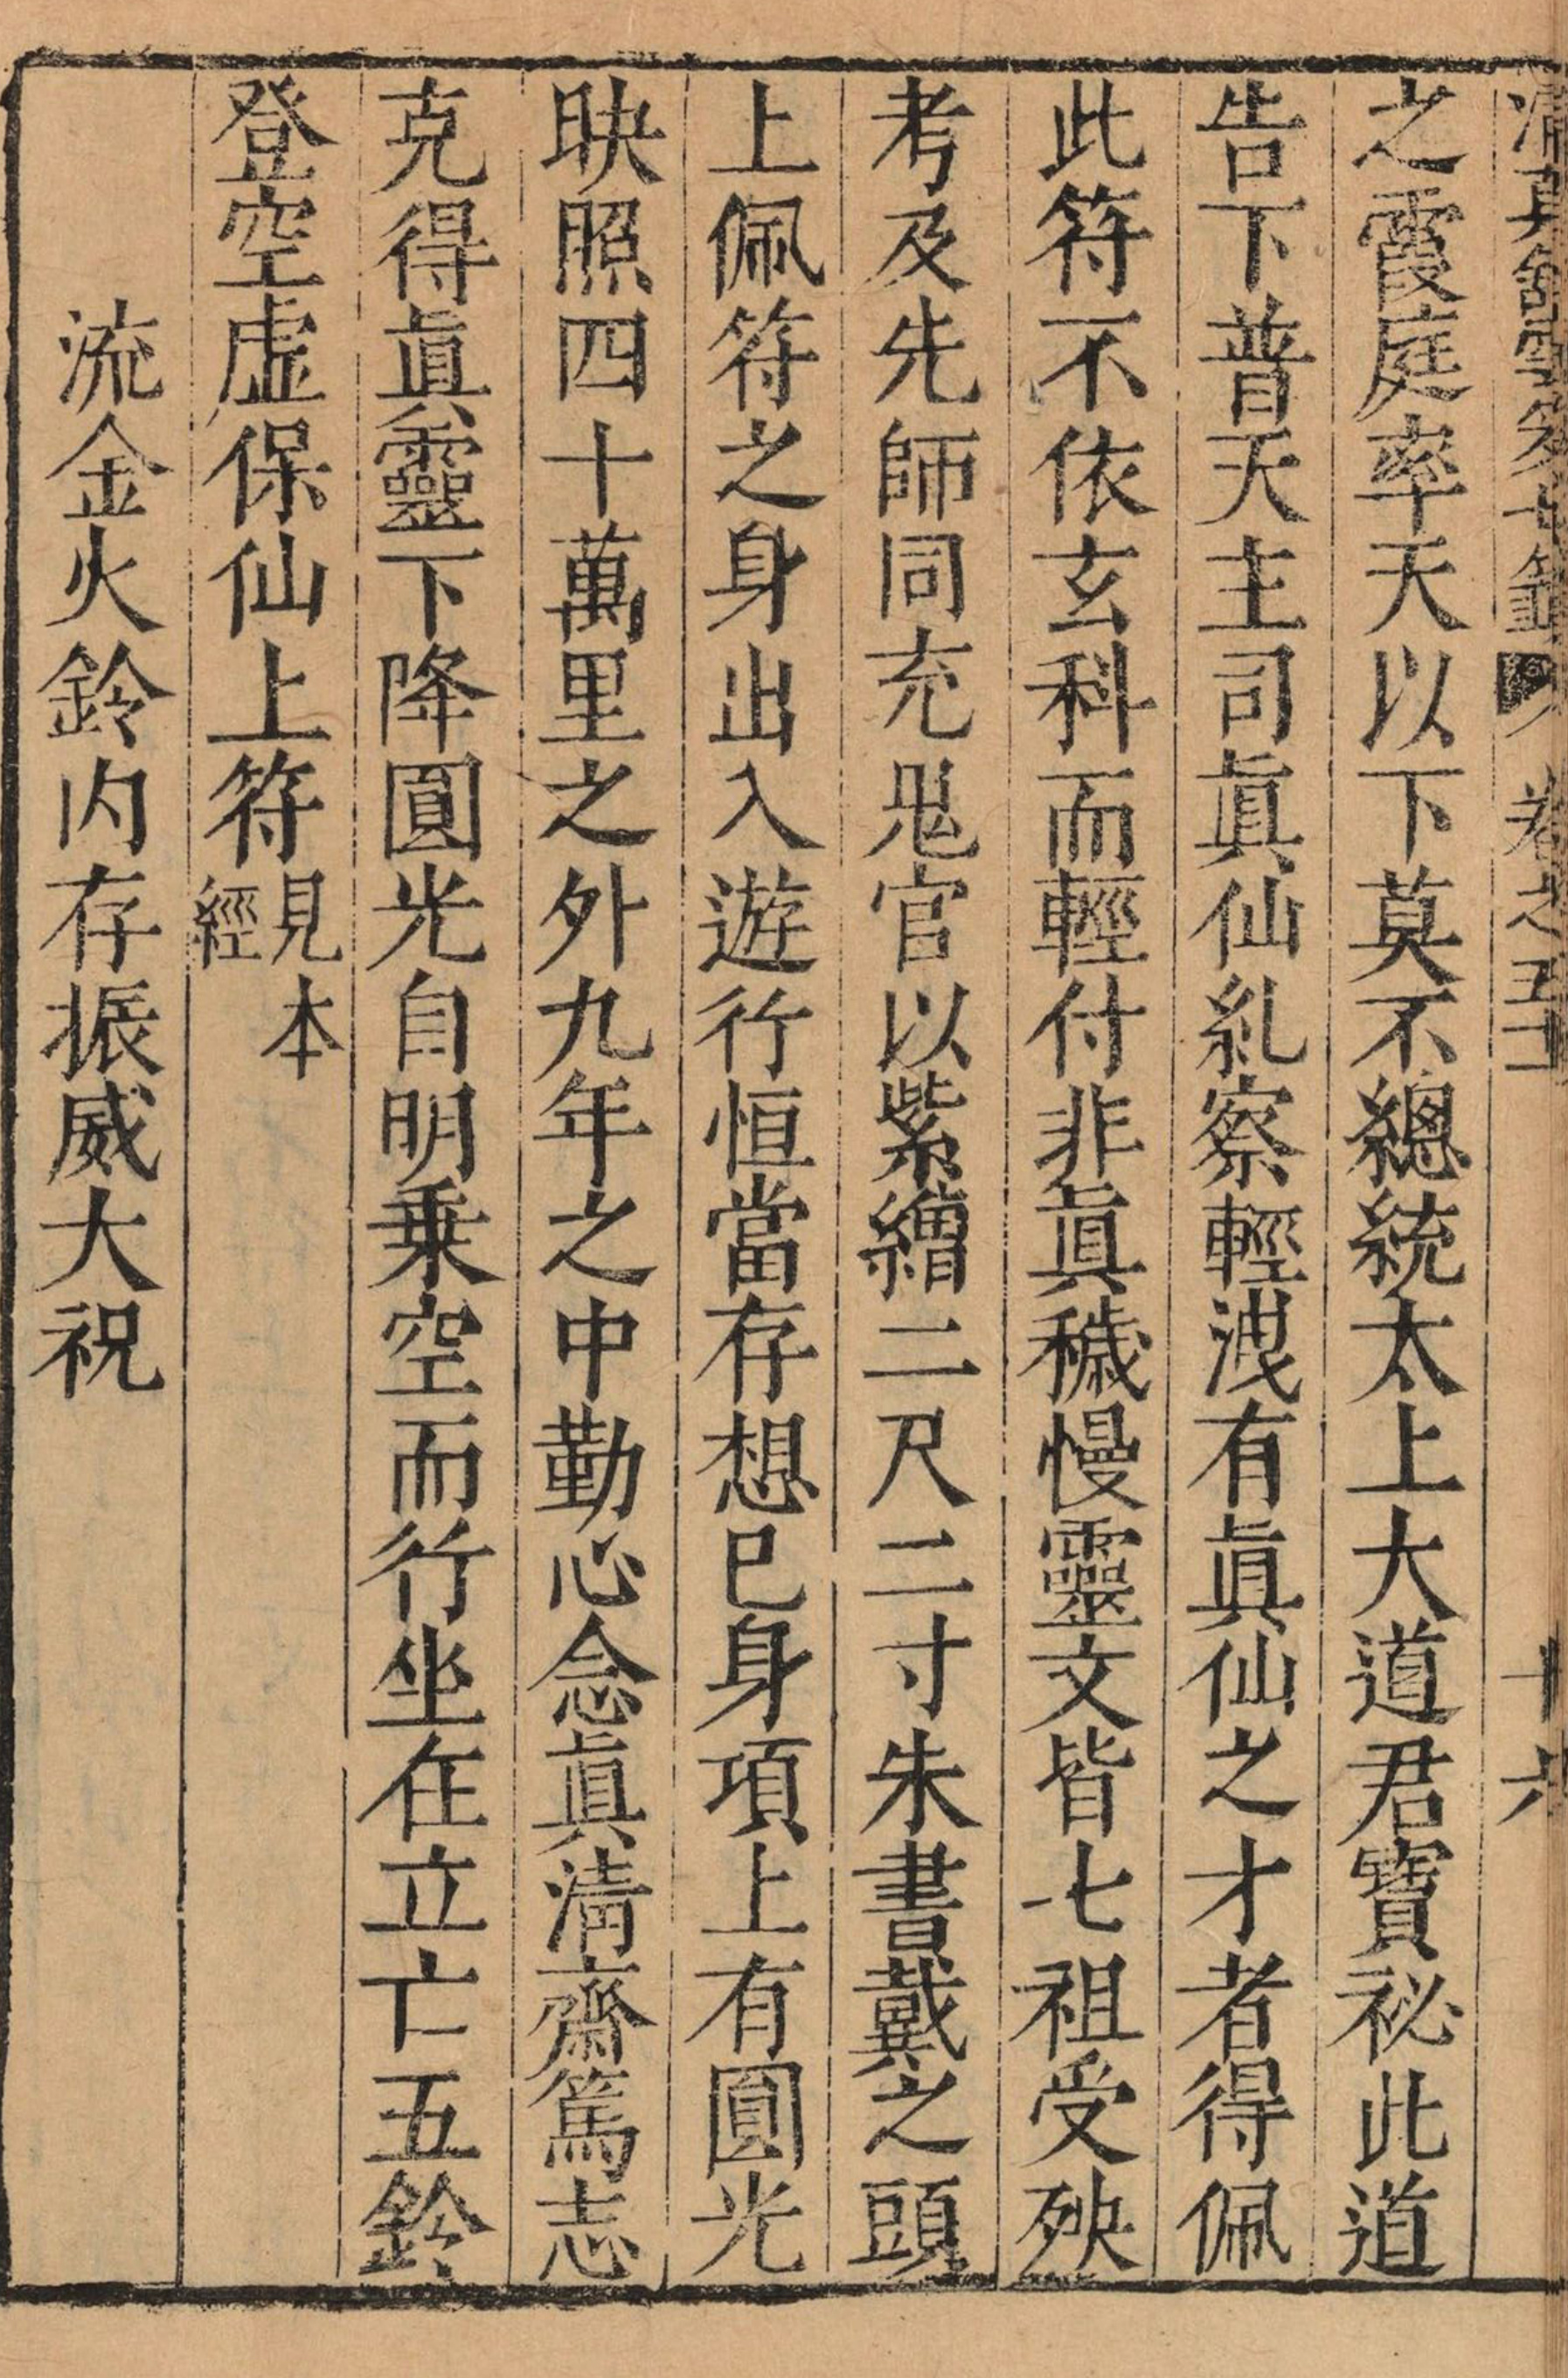 之霞庭率天以下莫不總統太上大道君寶祕此道
告下普天主司眞仙糺察輕洩有眞仙之才者得佩
此符不依玄科而輕付非眞穢慢靈文皆七祖受殃
考及先師同充鬼官以紫繒二尺二寸朱書戴之頭
上佩符之身出入遊行恒當存想已身項上有圓光
映照四十萬里之外九年之中勤心念眞清齋篤志
克得眞靈下降圓光自明乗空而行坐在立亡五鈴
登空虛保仙上符見本經
流金火鈴内存振威大祝
卷之五十
十六